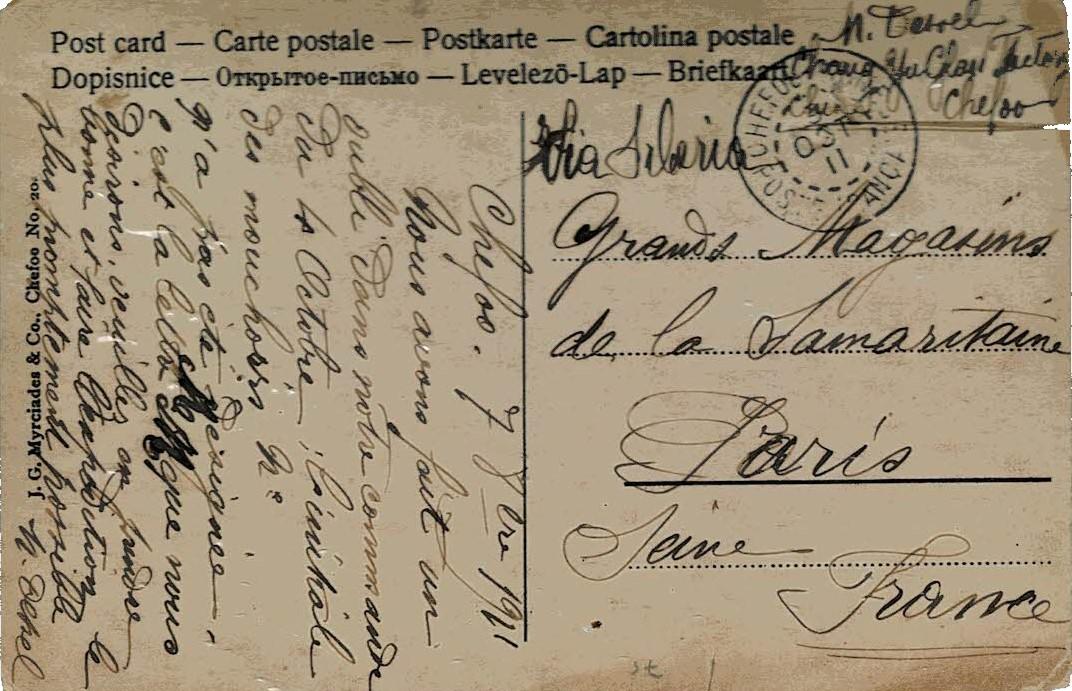 Post card — Carte postale — Postkarte — Cartolina postale
Dopisnice — Открытое-письмо — Levelező-Lap — Briefkaart
Chang Yu
Chefoo
CHEFOO
OCT
11
Via Siberia
Grands Magasins
de la Samaritaine
Paris
Seine
France
Chefoo. 7 8bre 1911
Nous avons fait un
oubli dans notre commande
Du 4 Octobre, l'initiale
des mouchoirs
n'a pas été désignée,
c'est la lettre que nous
Désirons, veuillez en prendre
bonne et faire l'expédition le
plus promptement possible
J. G. Myrciades & Co., Chefoo No. 20.